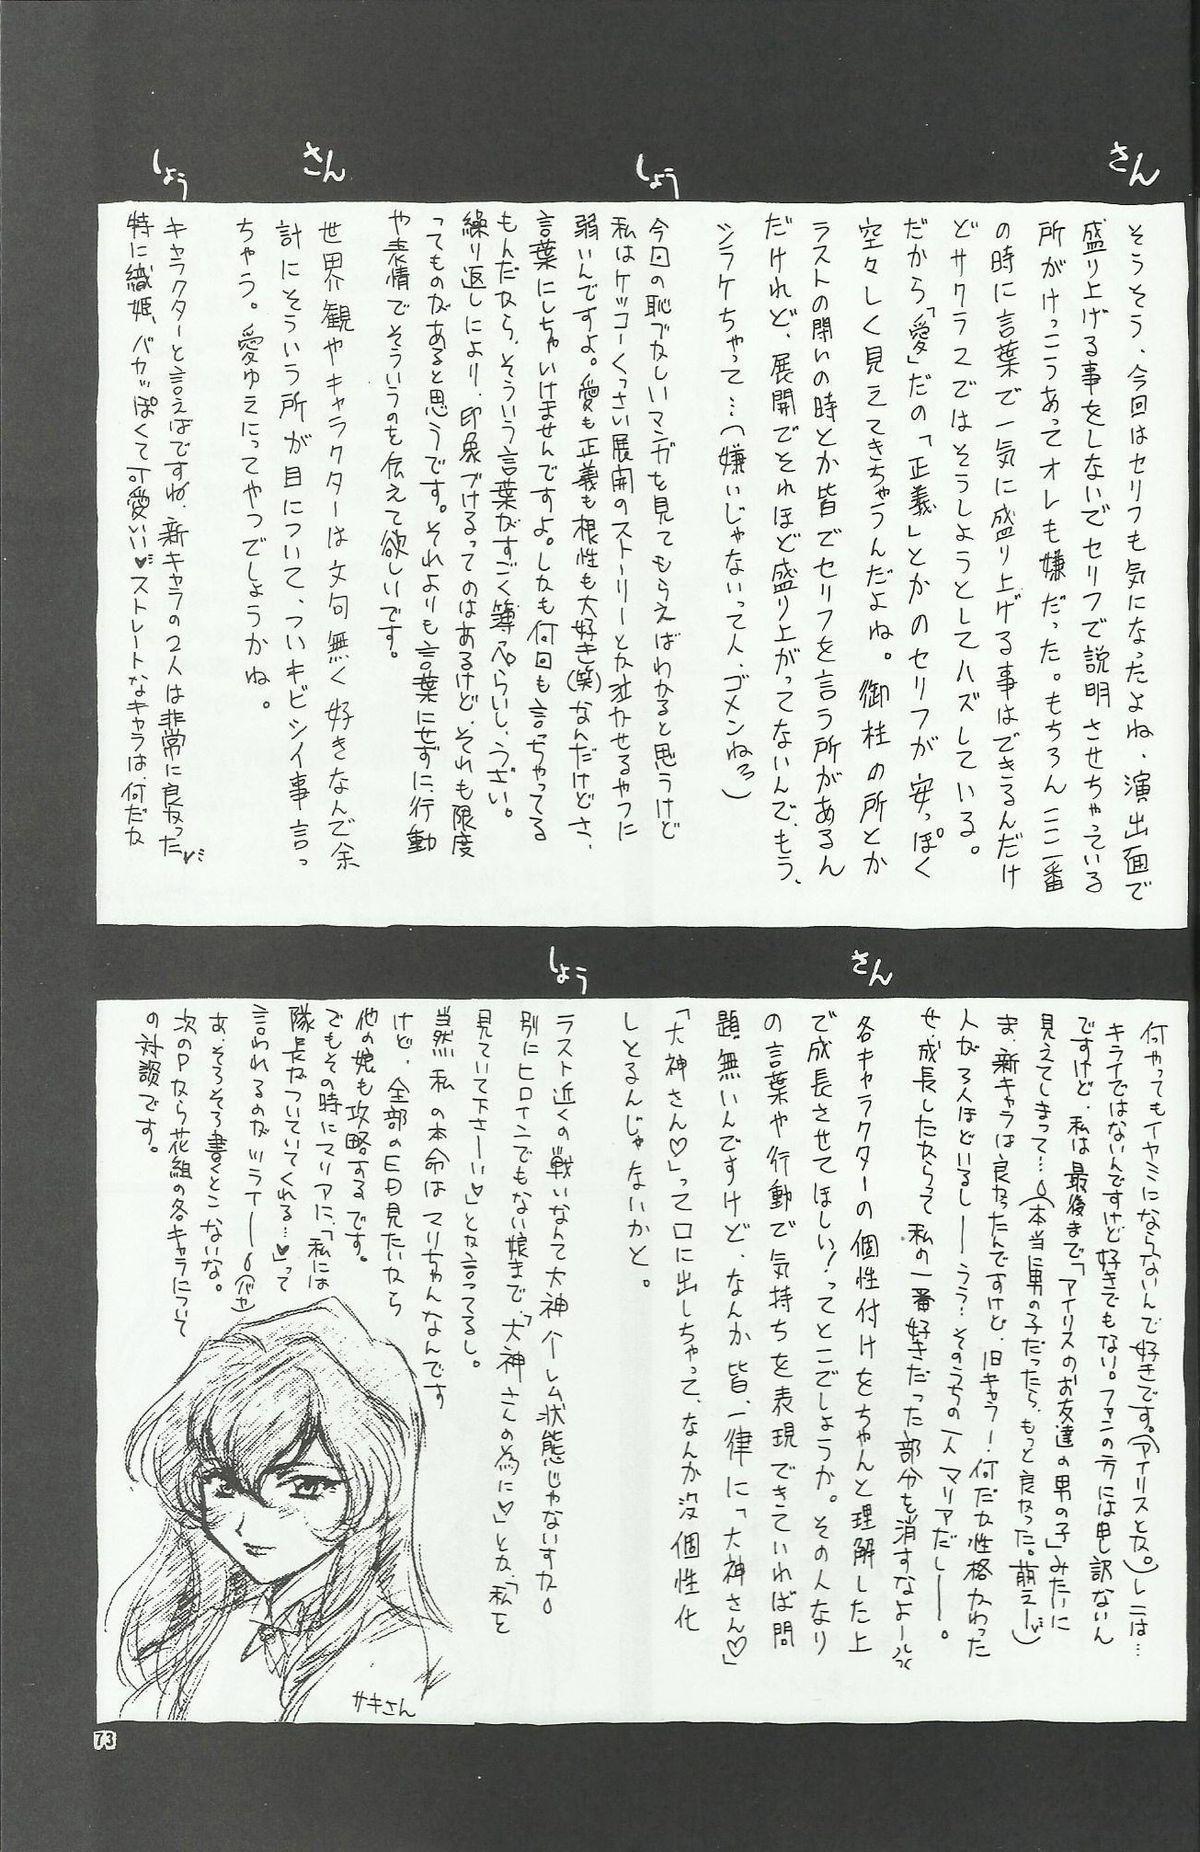 さん
そうそう、今回はセリフも気になったよね、演出面で
盛り上げる事をしないでセリフで説明させちゃっている
所がけっこうあってオレも嫌だった。もちろんここ一番
の時に言葉で一気に盛り上げる事はできるんだけ
どサクラ2ではそうしようとしてハズしている。
だから「愛」だの「正義」とかのセリフが安っぽく
空々しく見えてきちゃうんだよね。御柱の所とか
ラストの闘いの時とか皆でセリフを言う所があるん
だけれど、展開でそれほど盛り上がってないんで、もう、
シラケちゃって…(嫌いじゃないって人、ゴメンねろ)
しょう
今回の恥ずかしいマンガを見てもらえばわかると思うけど
私はケッコーくっさい展開のストーリーとか泣かせるやつに
弱いんですよ。愛も正義も根性も大好き(笑)なんだけどさ、
言葉にしちゃいけませんですよ。しかも何回も言っちゃってる
もんだから、そういう言葉がすごく薄っぺらいし、うざい。
繰り返しにより、印象づけるってのはあるけど、それも限度
ってものがあると思うです。それよりも言葉にせずに、行動
や表情でそういうのを伝えて欲しいです。
さん
世界観やキャラクターは文句無く好きなんで余
計にそういう所が目について、ついキビシイ事言っ
ちゃう。愛ゆえにってやつでしょうかね。
しょう
キャラクターと言えばですね、新キャラの2人は非常に良かった♥
特に織姫、バカッぽくて可愛い♥ストレートなキャラは、何だか
何やってもイヤミにならないんで好きです。(アイリスとか。)レニは…
キライではないんですけど好きでもない。ファンの方には申訳ないん
ですけど、私は最後まで「アイリスのお友達の男の子」みたいに
見えてしまって…(本当に男の子だったら、もっと良かった。萌えー)
ま、新キャラは良かったんですけど、旧キャラー・何だか性格かわった
人が3人ほどいるし――うう…そのうちの一人マリアだし――。
せ、成長したからって私の一番好きだった部分を消すなよールル
さん
各キャラクターの個性付けをちゃんと理解した上
で成長させてほしい!ってとこでしょうか。その人なり
の言葉や行動で気持ちを表現できていれば問
題無いんですけど、なんか皆、一律に「大神さん♡」
「大神さん♡」って口に出しちゃって、なんか没個性化
しとるんじゃないかと。
しょう
ラスト近くの戦いなんて大神ハーレム状態じゃないすか
別にヒロインでもない娘まで、「大神さんの為に♡」とか、「私を
見ていて下さーい♡」とか言ってるし。
当然私の本命はマリちゃんなんです
けど、全部のED見たいから
他の娘も攻略するです。
でもその時にマリアに、「私には
隊長がついていてくれる…♥」って
言われるのがツライ――(バカ)
あ、そろそろ書くとこないな。
次のPから花組の各キャラについて
の対談です。
サキさん
73